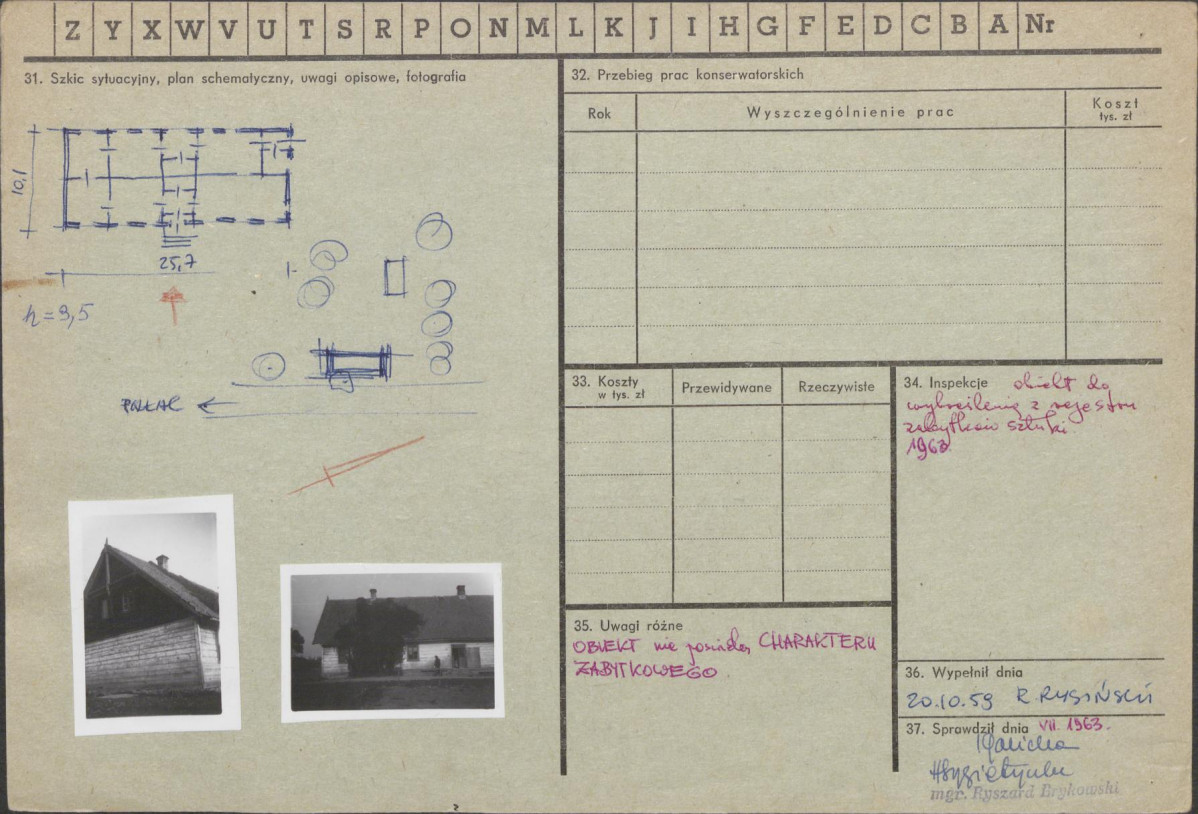 Z Y X W V U T S R P O N M L K J I H G F E D C B A Nr
31. Szkic sytuacyjny, plan schematyczny, uwagi opisowe, fotografia
10,1
25,7
h=9,5
PAŁAC
32. Przebieg prac konserwatorskich
Rok
Wyszczególnienie prac
Koszt
tys. zł
33. Koszty
w tys. zł
Przewidywane
Rzeczywiste
34. Inspekcje obiekt do
wykreślenia z rejestru
zabytków sztuki
1963.
35. Uwagi różne
OBIEKT nie posiada CHARAKTERU
ZABYTKOWEGO.
36. Wypełnił dnia
20.10.59 R. RYSIŃSKI
37. Sprawdził dnia VII. 1963.
mgr. Ryszard Brykowski